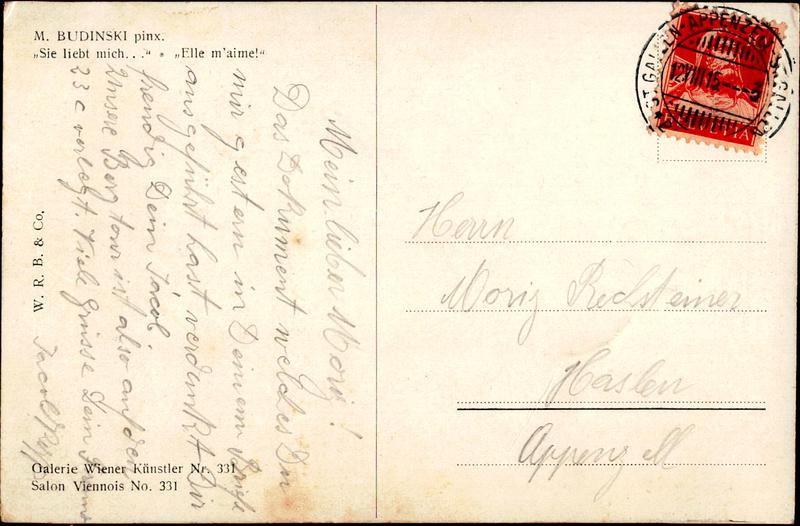 M. BUDINSKI pinx.
„Sie liebt mich. . ." • „Elle m'aime!"
W. R. B. & Co.
Galerie Wiener Künstler Nr. 331
Salon Viennois No. 331
ST. GALLEN-APPENZELL-ST. GALLEN
12.VIII.15.
Mein lieber Moriz!
Das Dokument welches Du
mir gestern in Deinem
ausgeführt hast verdankt Dir
freudig Dein Jacob.
Unsere Bergtour ist also auf den
23 c verlegt. Viele Grüsse Dein Freund
Jacob
Herrn
Moriz Rechsteiner
Haslen
Appenz